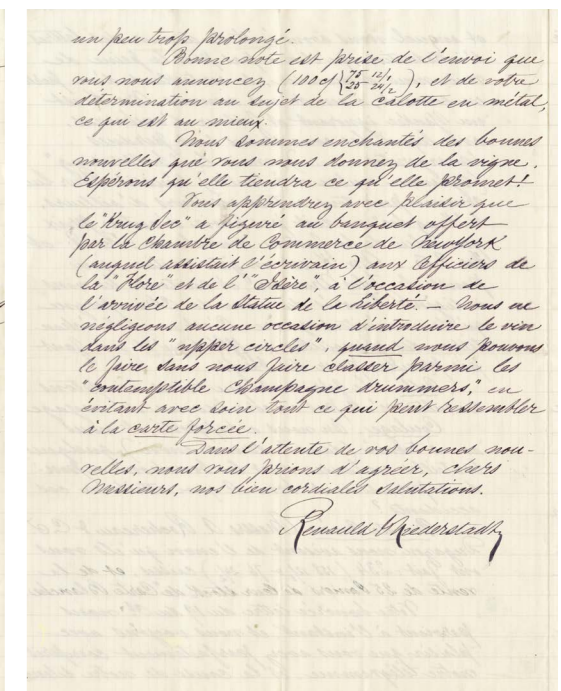 un peu trop prolongé.
Bonne note est prise de l'envoi que
vous nous annoncez (100 c/ { 75 12/1 25 24/2 ), et de votre
détermination au sujet de la calotte en métal,
ce qui est au mieux.
Nous sommes enchantés des bonnes
nouvelles que vous nous donnez de la vigne.
Espérons qu'elle tiendra ce qu'elle promet!
Vous apprendrez avec plaisir que
le "Krug Sec" a figuré au banquet offert
par la Chambre de Commerce de New York
(auquel assistait l'écrivain) aux Officiers de
la "Flore" et de l' "Isère", à l'occasion de
l'arrivée de la Statue de la Liberté. — Nous ne
négligeons aucune occasion d'introduire le vin
dans les "upper circles", quand nous pouvons
le faire sans nous faire classer parmi les
"contemptible Champagne drummers," en
évitant avec soin tout ce qui peut ressembler
à la carte forcée.
Dans l'attente de vos bonnes nou-
velles, nous vous prions d'agréer, chers
Messieurs, nos bien cordiales salutations.
Renauld & Niederstadt